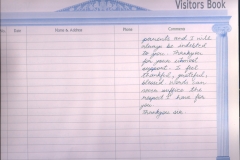 Visitors Book
No Date Name & Address Phone Comments
parents and I will
always be indebted
to you. Thankyou
for your
support. I feel
thankful, grateful,
words can
never suffice the
respect I have for
you.
Thankyou sir.